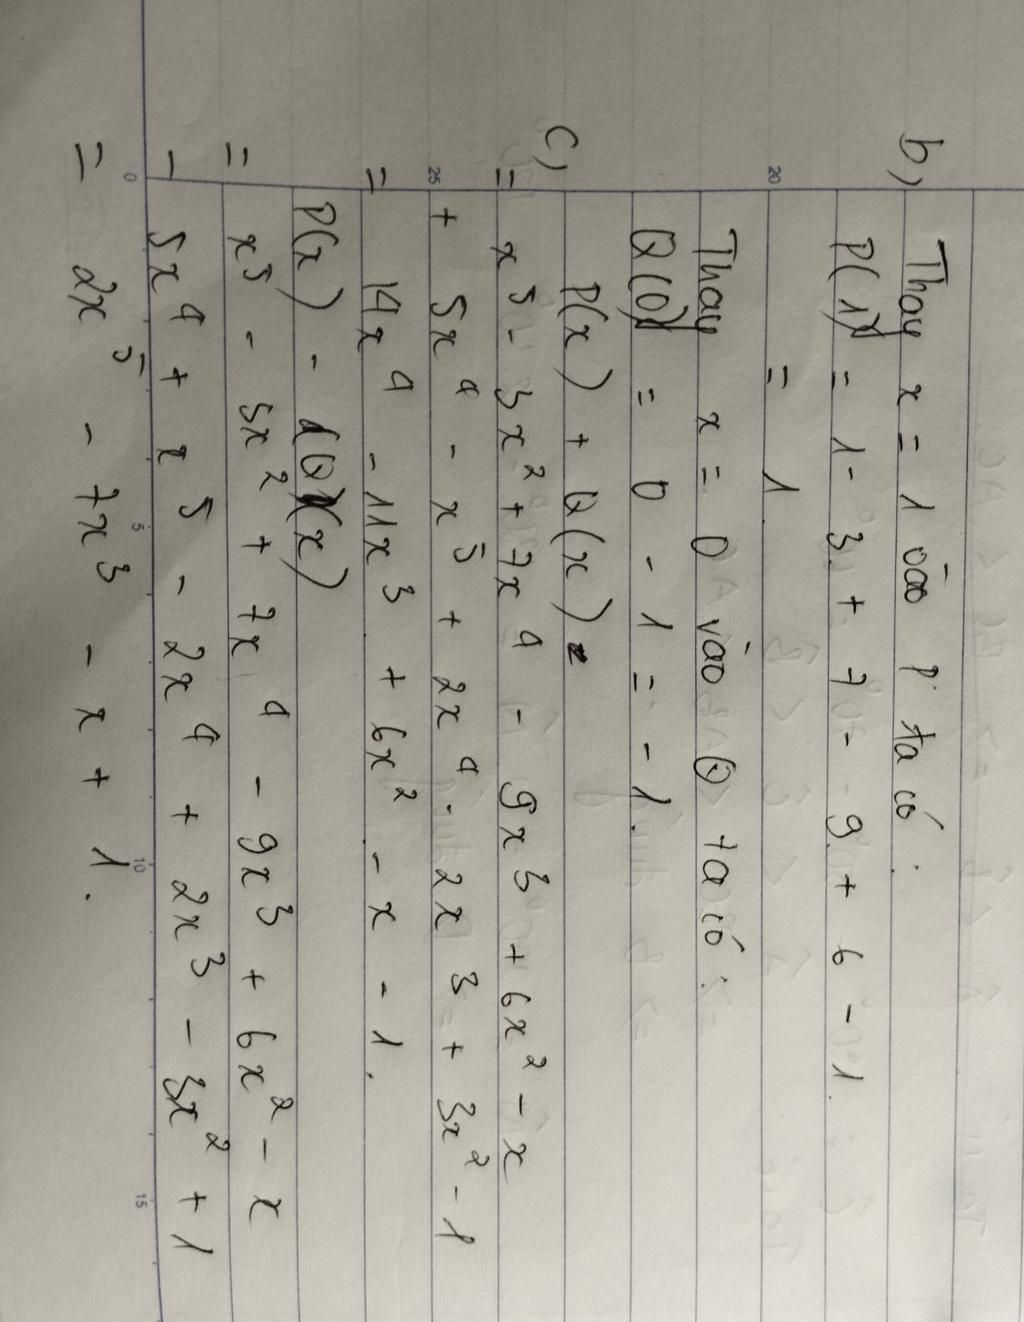 b) Thay x = 1 vào P ta có:
P(1) = 1 - 3 + 7 - 9 + 6 - 1
= 1
Thay x = 0 vào Q ta có:
Q(0) = 0 - 1 = -1.
c) P(x) + Q(x)
= x⁵ - 3x² + 7x⁴ - 9x³ + 6x² - x
+ 5x⁴ - x⁵ + 2x⁴ - 2x³ + 3x² - 1
= 14x⁴ - 11x³ + 6x² - x - 1.
P(x) - Q(x)
= x⁵ - 3x² + 7x⁴ - 9x³ + 6x² - x
- 5x⁴ + x⁵ - 2x⁴ + 2x³ - 3x² + 1
= 2x⁵ - 7x³ - x + 1.